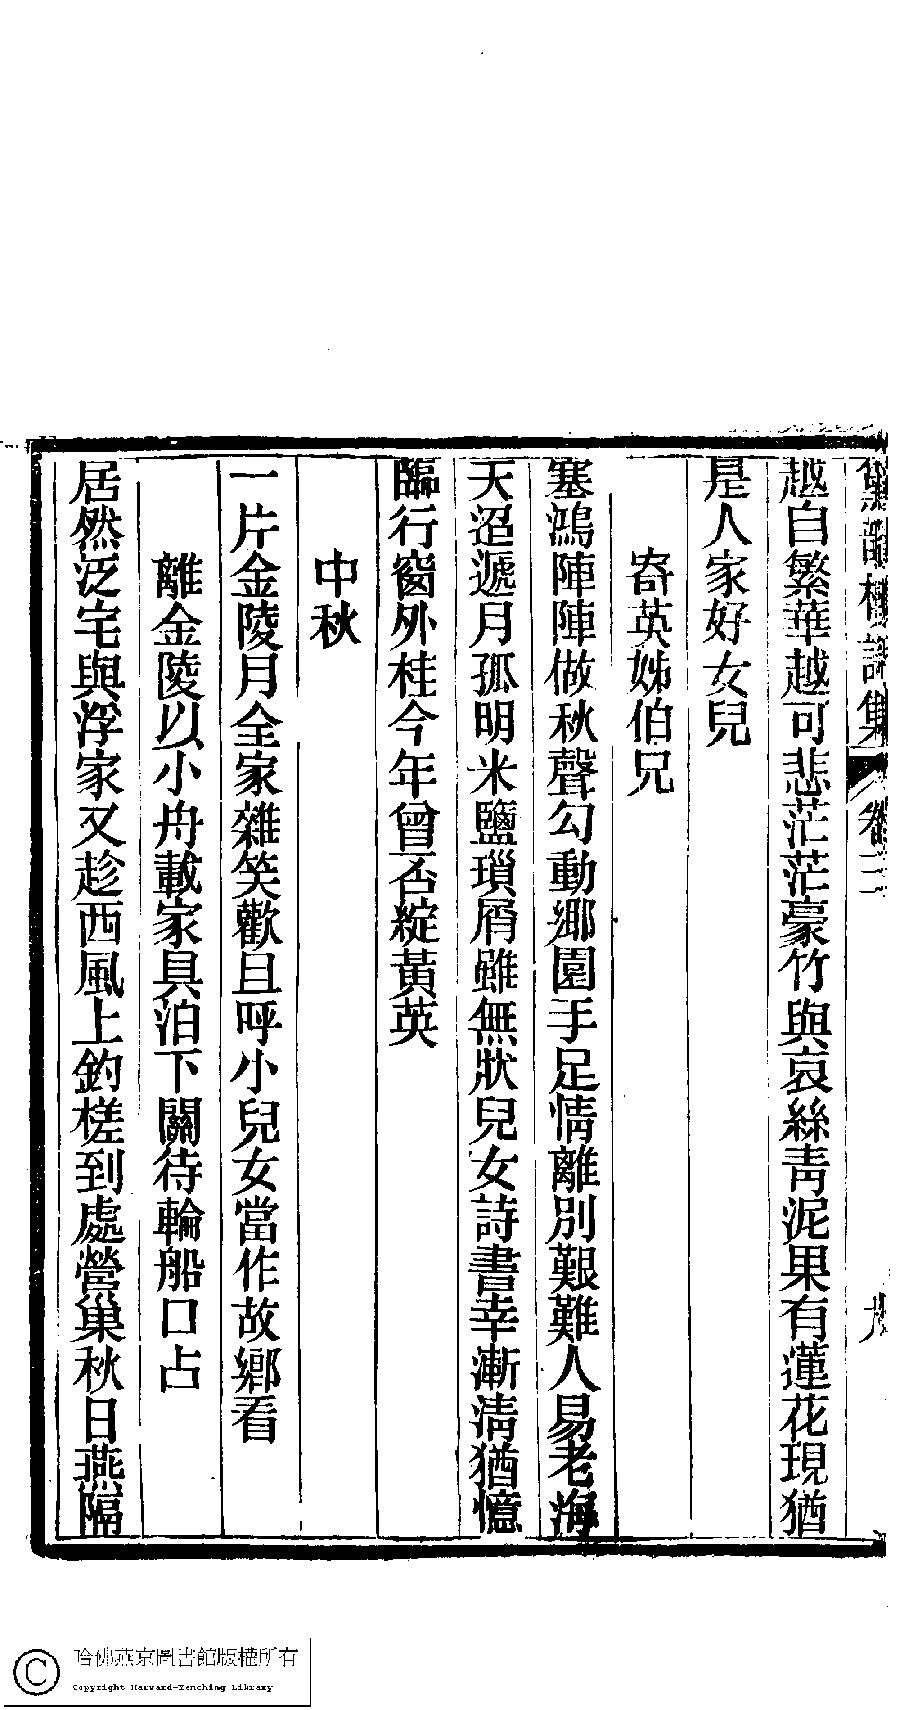 黛韻樓詩集 卷二 九
越自繁華越可悲茫茫豪竹與哀絲靑泥果有蓮花現猶
是人家好女兒
寄英姊伯兄
塞鴻陣陣做秋聲勾動鄉園手足情離別艱難人易老海
天迢遞月孤明米鹽瑣屑雖無狀兒女詩書幸漸淸猶憶
臨行窗外桂今年曾否綻黃英
中秋
一片金陵月全家雜笑歡且呼小兒女當作故鄉看
離金陵以小舟載家具泊下關待輪船口占
居然泛宅與浮家又趁西風上釣槎到處營巢秋日燕隔
哈佛燕京圖書館版權所有
Copyright Harvard-Yenching Library